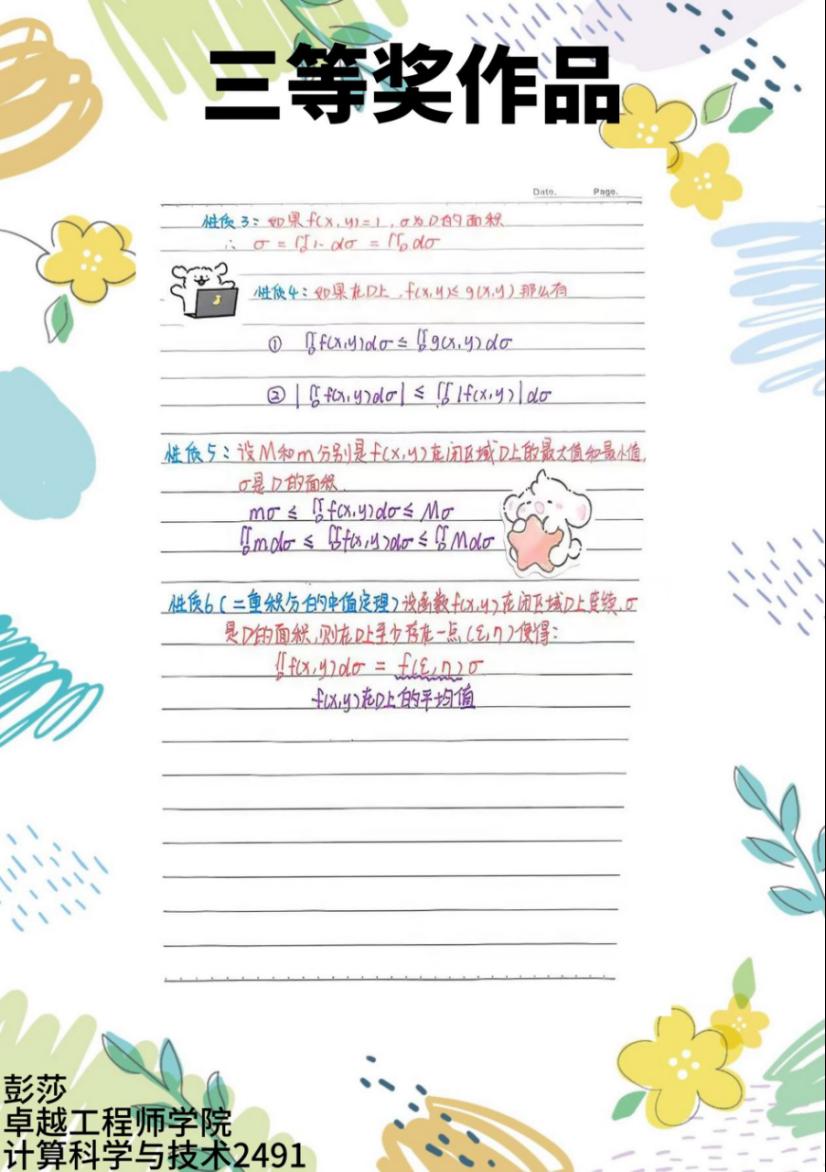 三等奖作品
Date. Page.
性质3：如果f(x,y)=1，σ为D的面积
∴ σ = ∬_D 1·dσ = ∬_D dσ
性质4：如果在D上，f(x,y)≤g(x,y)那么有
① ∬_D f(x,y)dσ ≤ ∬_D g(x,y)dσ
② |∬_D f(x,y)dσ| ≤ ∬_D |f(x,y)|dσ
性质5：设M和m分别是f(x,y)在闭区域D上的最大值和最小值，
σ是D的面积.
mσ ≤ ∬_D f(x,y)dσ ≤ Mσ
∬_D mdσ ≤ ∬_D f(x,y)dσ ≤ ∬_D Mdσ
性质6(二重积分的中值定理)设函数f(x,y)在闭区域D上连续，σ
是D的面积，则在D上至少存在一点(ξ,η)使得：
∬f(x,y)dσ = f(ξ,η)σ
f(x,y)在D上的平均值
彭莎
卓越工程师学院
计算科学与技术2491